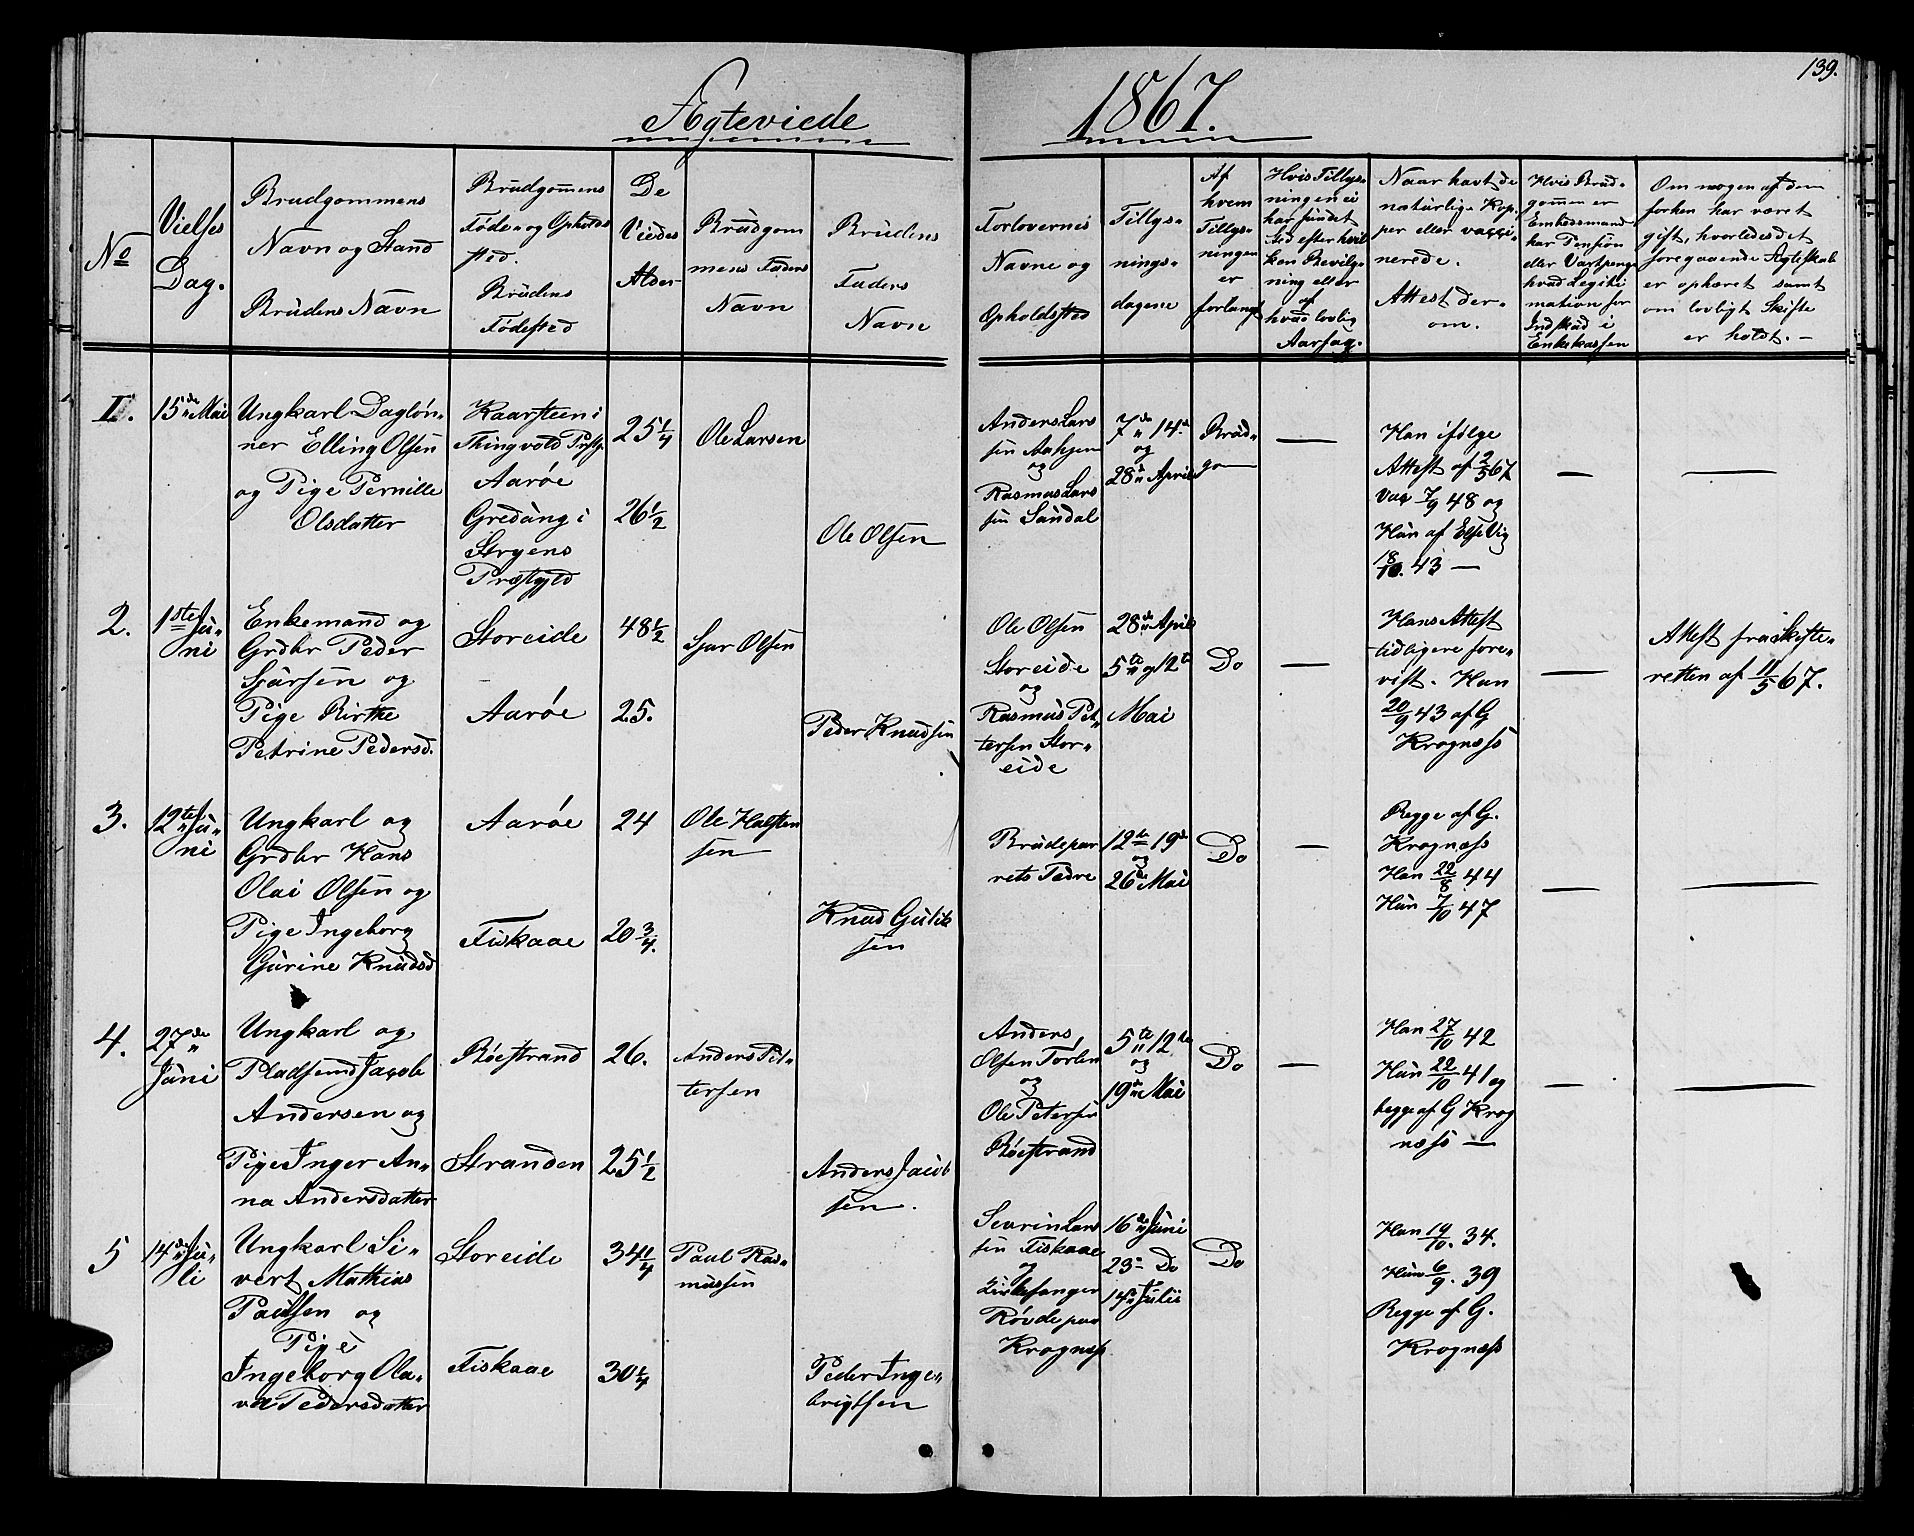 139.
Ægteviede 1867.
No
Vielses
Dag.
Brudgommens
Navn og Stand
Brudens Navn
Brudgommens
Føde- og Opholds
sted.
Brudens
Fødested
De
Viedes
Alder
Brudgom
mens Faders
Navn
Brudens
Faders
Navn
Forlovernes
Navne og
Opholdssted
Tillys-
nings-
dagene
Af
hvem
Tillys-
ningen
er
forlangt
Hvis Tillys-
ningen ei
har fundet
Sted efter hvil
ken Bevilg-
ning eller
af
hvad lovlig
Aarsag.
Naar havt de
naturlige Kop
per eller vacci-
nerede.
Attest der-
om.
Hvis Brud-
gommen er
Embedsmand
har Pension
eller Vartpenge
hvad Legiti
mation for
Indskud i
Enkekassen
Om nogen af dem
forhen har været
gift, hvorledes det
foregaaende Ægteskab
er ophævet samt
om lovligt Skifte
er holdt. -
1.
15de Mai
Ungkarl Dagløn-
ner Elling Olsen
og Pige Pernille
Olsdatter
Kaarsteen i
Thingvold Præstg.
Aarøe
Gredung i
Stryens
Præstgjld
25 1/4
26 1/2
Ole Larsen
Ole Olsen
Anders Lars
sen
og
Rasmus Lars
sen Sandal
7de 14de
og
28de April
Brud-
go
—
Han ifølge
Attest af 2/5 67
Vac 7/9 48 og
Hun af Else Vig
18/10. 43 —
—
—
2.
1ste Ju-
ni
Enkemand og
Grdbr Peder
Sjursen og
Pige Birthe
Petrine Pedersd.
Storeide
Aarøe
48 1/2
25.
Sjur Olsen
Peder Knudsen
Ole Olsen
Storeide
og
Rasmus Pet-
tersen Stor-
eide
28de April
5te og 12te
Mai
Do
—
Hans Attest
tidligere fore-
vist. Hun
20/9 43 af G
Krognæss
—
Attest fra Skifte-
retten af 11/5 67.
3.
12te Ju-
ni
Ungkarl og
Grdbr Hans
Olai Olsen og
Pige Ingeborg
Gurine Knudsd
Aarøe
Fiskaae
24
20 3/4.
Ole Halsten
sen
Knud Gulik
sen
Brudepar
rets Fædre
12te 19de
og
26de Mai
Do
—
Begge af G.
Krognæss
Han 22/8 44
Hun 7/10 47
—
—
4.
27de
Juni
Ungkarl og
Pladsemd Jacob
Andersen og
Pige Inger An-
na Andersdatter
Røestrand
Stranden
26.
25 1/2
Anders Pet-
tersen
Anders Jacob
sen.
Anders
Olsen Torlen
og
Ole Petersen
Røestrand
5te 12te
og
19de Mai
Do
—
Han 27/10 42
Hun 22/10 41 og
begge af G Krog
næss —
—
—
5
14de Ju-
li
Ungkarl Si-
vert Mathias
Paulsen og
Pige
Ingeborg Ola-
va Pedersdatter
Storeide
Fiskaae
34 1/4
30 1/4
Paul Ras-
mussen
Peder Inge-
brigtsen
Severin Lars
sen Fiskaae
og
Kirkesanger
Røvde paa
Krognæss
16de Juni
23- Do
14de Julii
Do
Han 19/10. 34.
Hun 6/9. 39
Begge af G.
Krognæss